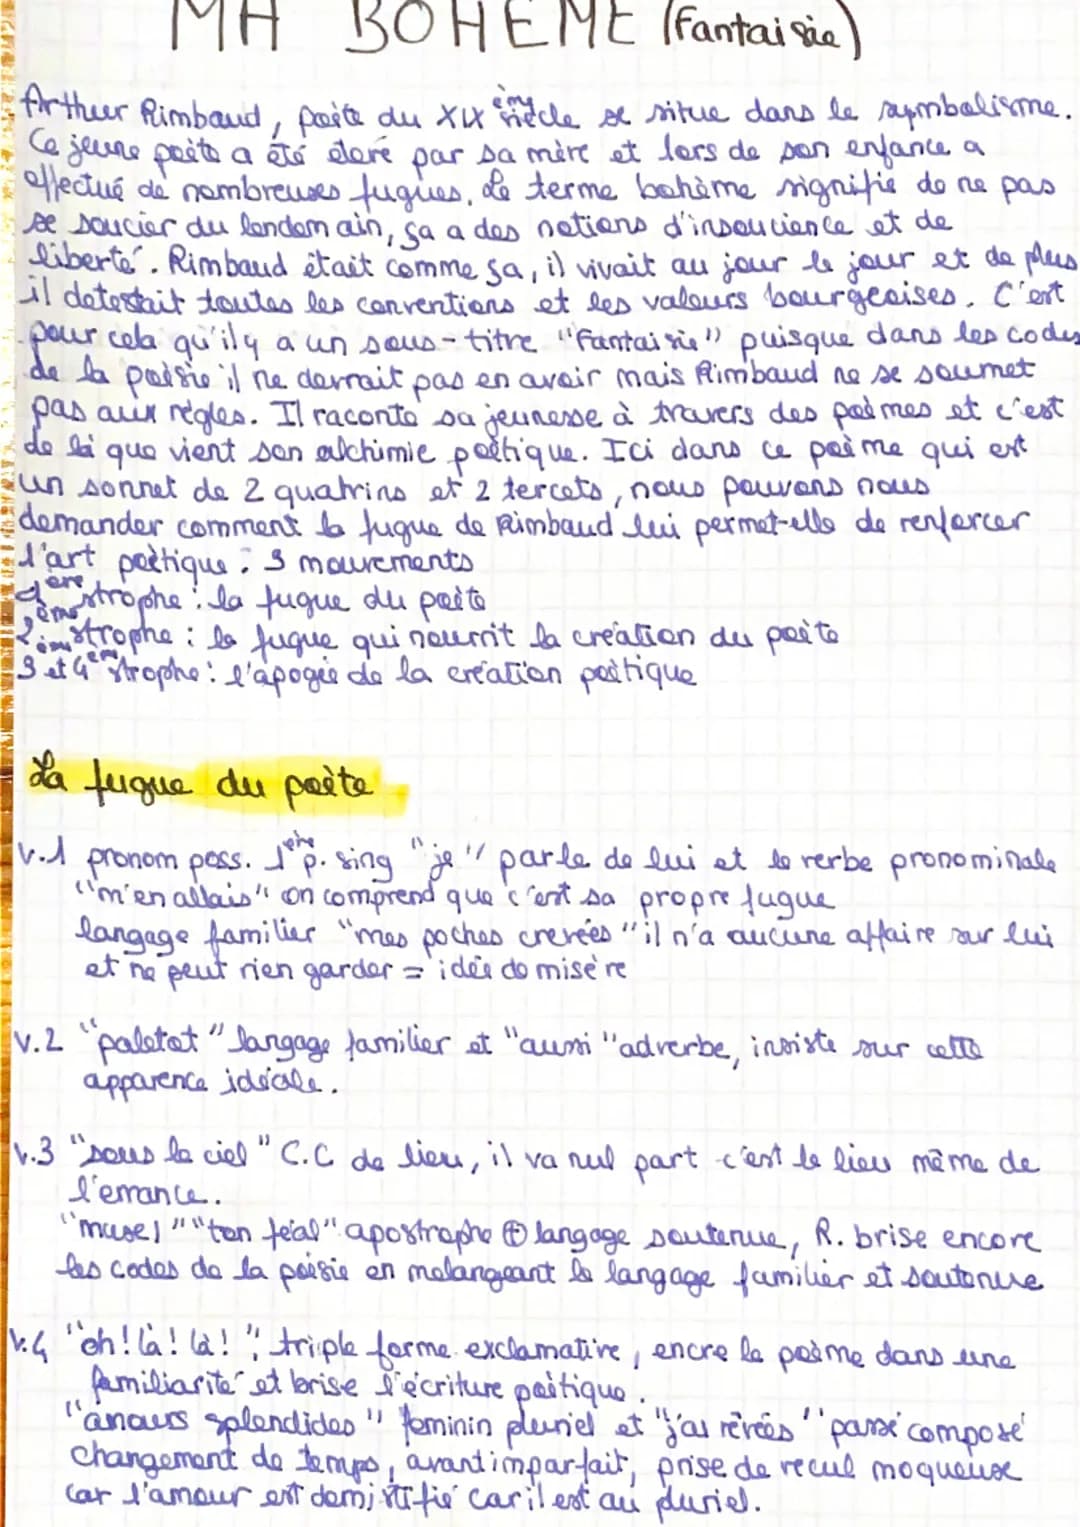 MA BOHÈME (Fantaisie)
Arthur Rimbaud, poète du XIX ème siècle se situe dans le symbolisme.
Ce jeune poète a été élevé par sa mère et lors de son enfance a
effectué de nombreuses fugues. Le terme bohème signifie de ne pas
se soucier du lendemain, ça a des notions d'insouciance et de
liberté. Rimbaud était comme ça, il vivait au jour le jour et de plus
il detestait toutes les conventions et les valeurs bourgeoises. C'est
pour cela qu'il y a un sous-titre "Fantaisie" puisque dans les codes
de la poésie il ne devrait pas en avoir mais Rimbaud ne se soumet
pas aux règles. Il raconte sa jeunesse à travers des poèmes et c'est
de là que vient son alchimie poétique. Ici dans ce poème qui est
un sonnet de 2 quatrins et 2 tercets, nous pouvons nous
demander comment la fugue de Rimbaud lui permet-elle de renforcer
l'art poètique : 3 mouvements
1ère strophe : la fugue du poète
2ème strophe : la fugue qui nourrit la création du poète
3ème et 4ème strophe : l'apogée de la création poètique
La fugue du poète
v.1 pronom poss. 1ère p. sing "je" parle de lui et le verbe pronominale
"m'en allais" on comprend que c'est sa propre fugue
langage familier "mes poches crevées" il n'a aucune affaire sur lui
et ne peut rien garder = idée de misère
v.2 "paletot" langage familier et "aussi" adverbe, insiste sur cette
apparence idéale.
v.3 "sous le ciel" C.C de lieu, il va nul part c'est le lieu même de
l'errance.
"muse," "ton féal" apostrophe ⊕ langage soutenue, R. brise encore
les codes de la poésie en melangeant le langage familier et soutenue
v.4 "oh! là! là!", triple forme exclamative, encre le poème dans une
familiarité et brise l'écriture poètique.
"amours splendides" feminin pluriel et "j'ai rêvées" passé composé
changement de temps, avant imparfait, prise de recul moqueuse
car l'amour est demistifié car il est au pluriel.